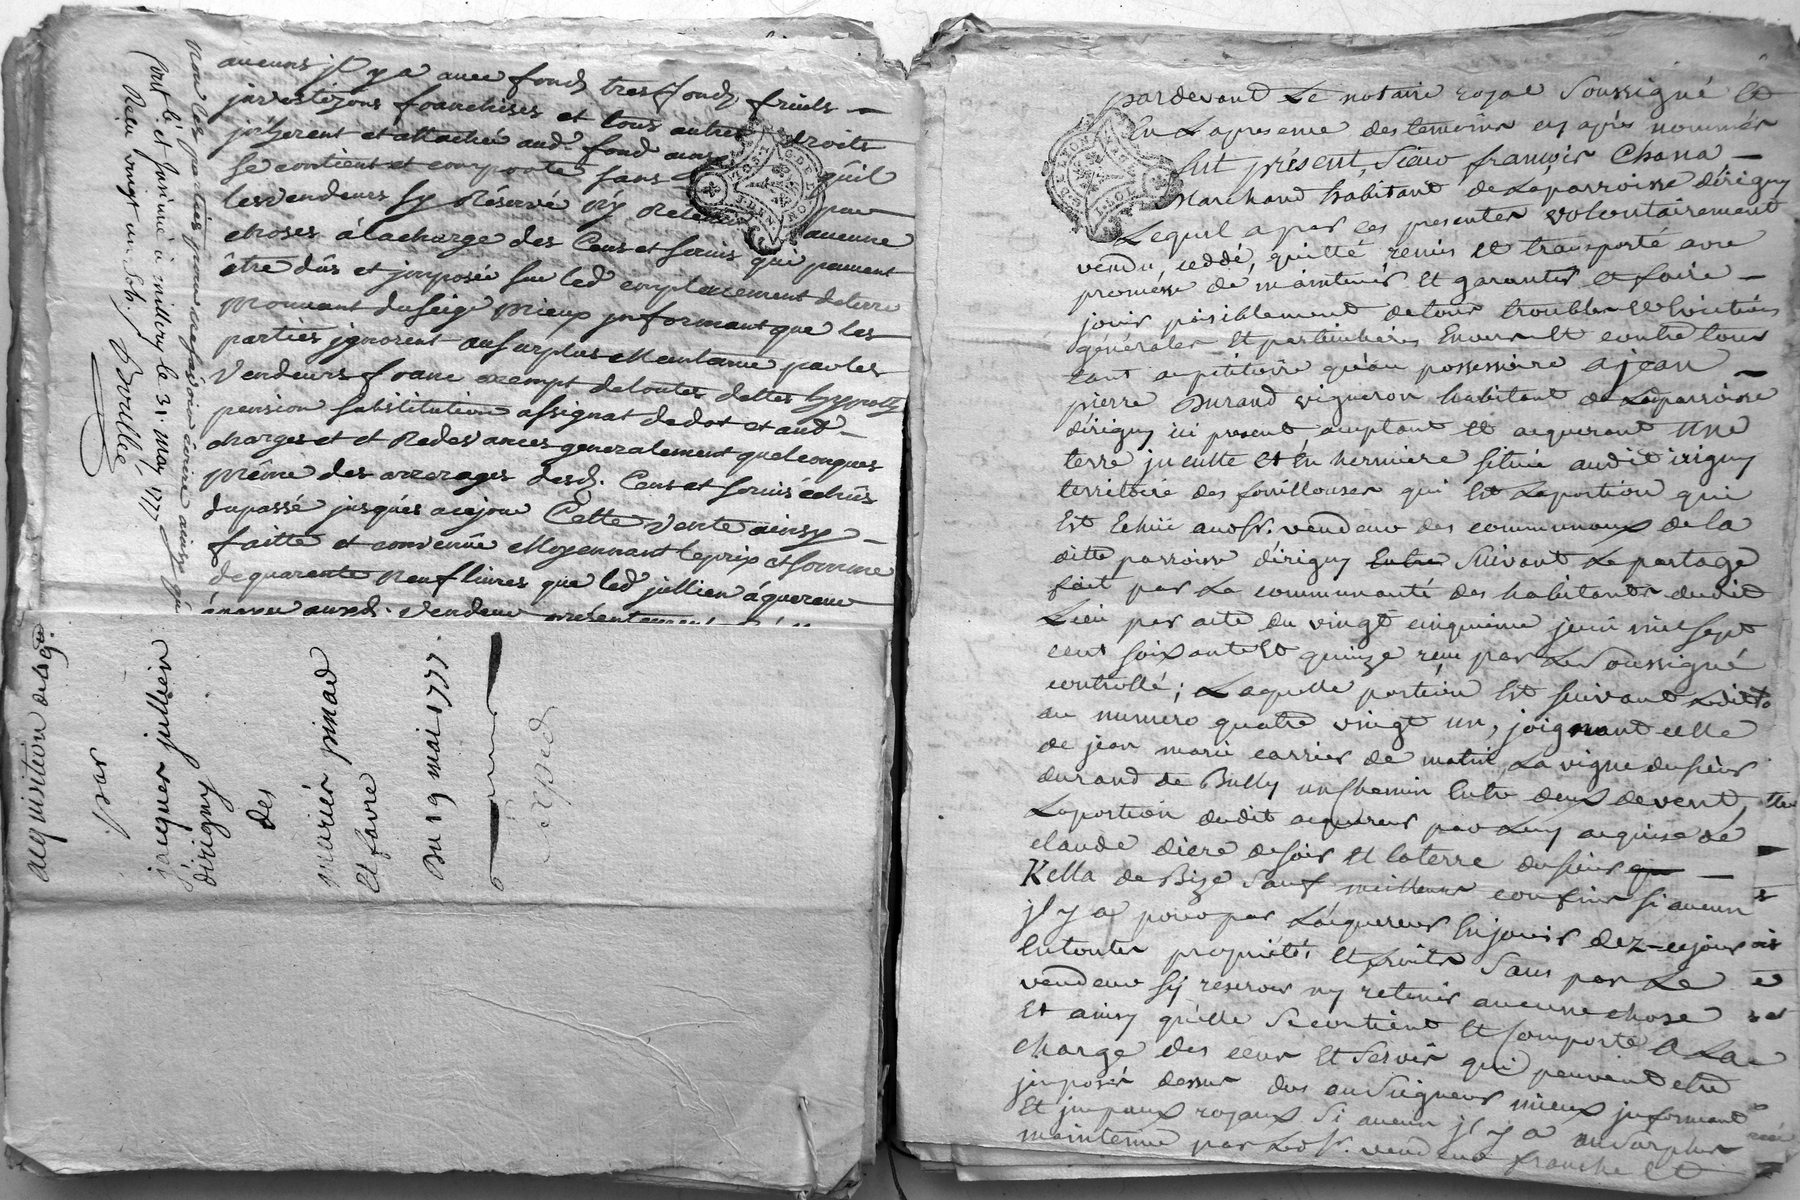 aucuns jl y a avec fonds tres fonds fruits
jnvestizons franchises et tous autres droits
jnherent et attachés aud. fond ainsi quil
se contient et comporte sans que
les vendeurs sy Réservé ny Retenu aucune
choses à la charge des Cens et servis qui peuvent
être dûs et jmposée sur led emplacement de terre
mouvant du seigr mieux jnformant que les
parties jgnorent au surplus Maintenue par les
vendeurs franc exempt de toutes dettes hypotz
pension substitution assignat de dot et aud
charges et et Redevances generalement quelconques
même des arrerages desd. Cens et servis échûs
du passé jusqués a ce jour Cette vente ainsy
faitte et convenüe Moyennant le prix et somme
de quarante neuf livres que led jullien áquereur
aux d. vendeur présentement
Nous les parties pour
Contrôlé et Jnsinué à millery le 31. may 1777
Reçu vingt un sols.
acquisition de
par
jacques jullien
dirigny
des
mariés pinad
Et favre
Du 19 mai 1777
Exped
pardevant Le notaire royal soussigné Et
En La presence des temoins cy après nommés
fut présent, Sieur françois Chana
Marchand habitant de La parroisse dirigny
Lequel a par ces presentes volontairement
vendu, ceddé, quitté remis et transporté avec
promesse de maintenir Et garantir et faire
jouir paisiblement de tous troubles Et Evictions
générales Et particulieres Envers Et contre tous
tant au petitoire qu'au possessoire a jean
pierre Durand vigneron habitant de La parroisse
dirigny ici present, acceptant Et acquerant une
terre jnculte Et En hermiere située audit irigny
territoire des fouillouses qui Est La portion qui
Est Echüe audsr. vendeur des communaux de la
ditte parroisse dirigny Suivant Le partage
fait par La communauté des habitants dudit
Lieu par acte du vingt cinquieme juin mil sept
cent soixante Et quinze reçu par Le Soussigné
controllé; Laquelle portion Est suivant Ledit
au numero quatre vingt un, joignant celle
de jean marie carrier de matin, La vigne du sieur
durand de Bully un chemin Entre deux de vent,
La portion dudit acquereur par Luy acquise de
claude diere de soir Et la terre du sieur
Kella de Bize sauf meilleurs confins si aucun
jl y a pour par L'aquereur En jouir dez-ce jour
En toutes propriétés Et fruits Sans par Le
vendeur sy reserver ny retenir aucune chose
Et ainsy qu'elle Se contient Et comporte a La
charge des cens Et servis qui peuvent etre
jmposés dessus dus au Seigneur mieux jnformant
Et jmpaux royaux Si aucun jl y a au surplus
maintenue par Ledsr. vendeur franche Et